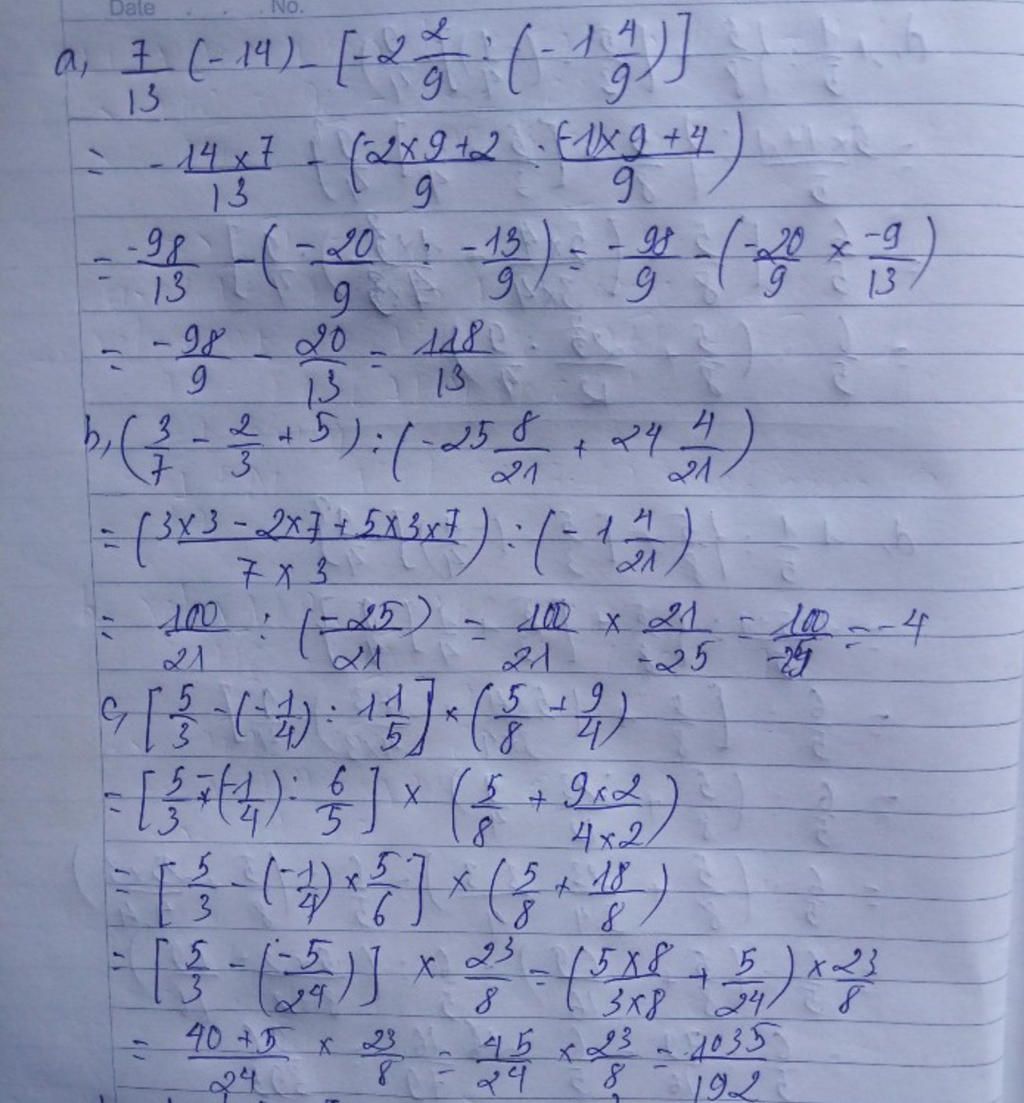 Date . . . No.
a, 7/13 (-14) - [-2 2/9 : (-1 4/9)]
= - 14x7/13 - (-2x9+2/9 : (-1)x9+4/9)
= -98/13 - (-20/9 : -13/9) = -98/9 - (-20/9 x -9/13)
= -98/9 - 20/13 = 118/13
b, (3/7 - 2/3 + 5) : (-25 8/21 + 24 4/21)
= (3x3 - 2x7 + 5x3x7 / 7x3) : (-1 4/21)
= 100/21 : (-25/21) = 100/21 x 21/-25 = 100/-25 = -4
c, [5/3 - (-1/4) : 1 1/5] x (5/8 + 9/4)
= [5/3 - (-1/4) : 6/5] x (5/8 + 9x2/4x2)
= [5/3 - (-1/4) x 5/6] x (5/8 + 18/8)
= [5/3 - (-5/24)] x 23/8 = (5x8/3x8 + 5/24) x 23/8
= 40+5/24 x 23/8 = 45/24 x 23/8 = 1035/192